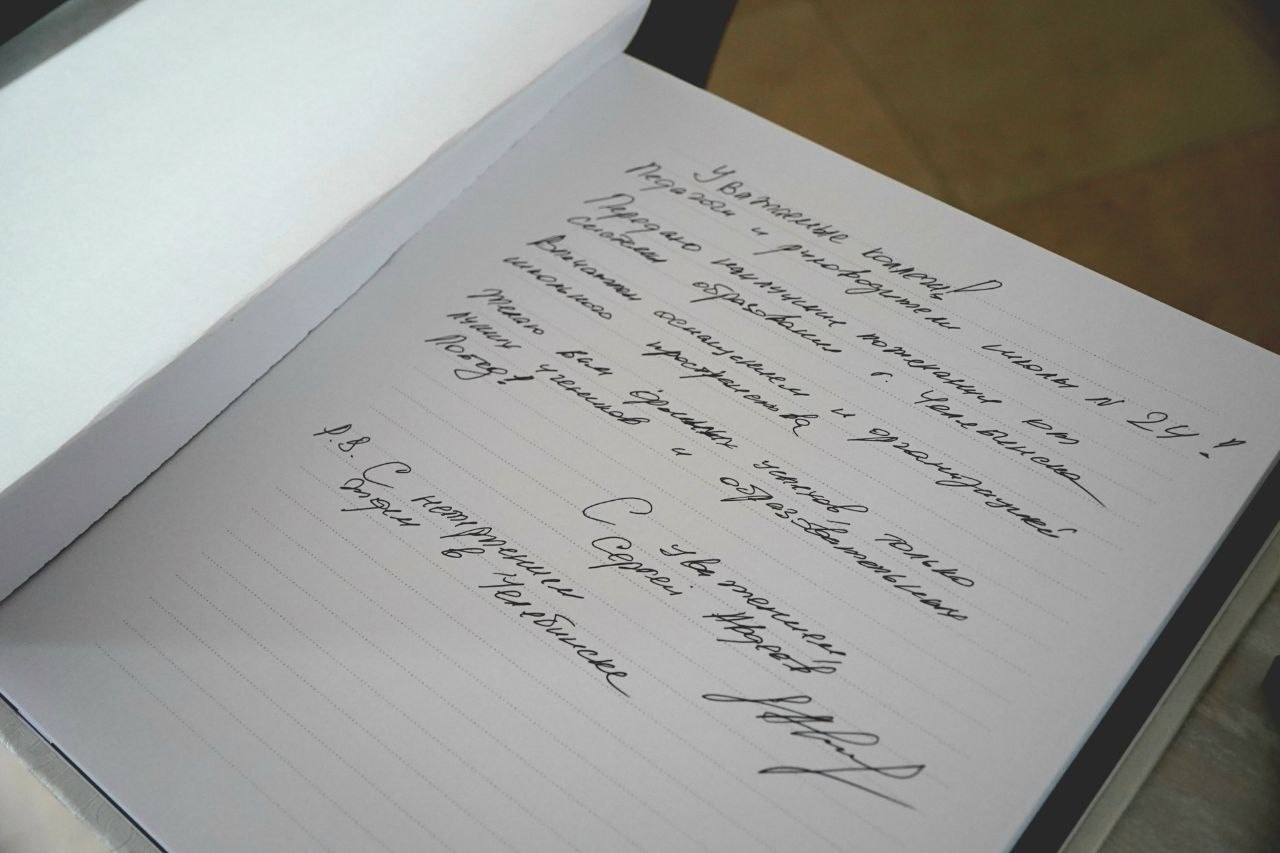 Уважаемые коллеги!
Педагоги и руководители школы N 24!
Передаю наилучшие пожелания от
системы образования г. Челябинска
Впечатлён оснащением и организацией
школьного пространства
Желаю вам больших успехов только
лучших учеников и образовательных
Побед!
С уважением
Сергей Авдеев
P.S. С нетерпением
ждем в Челябинске